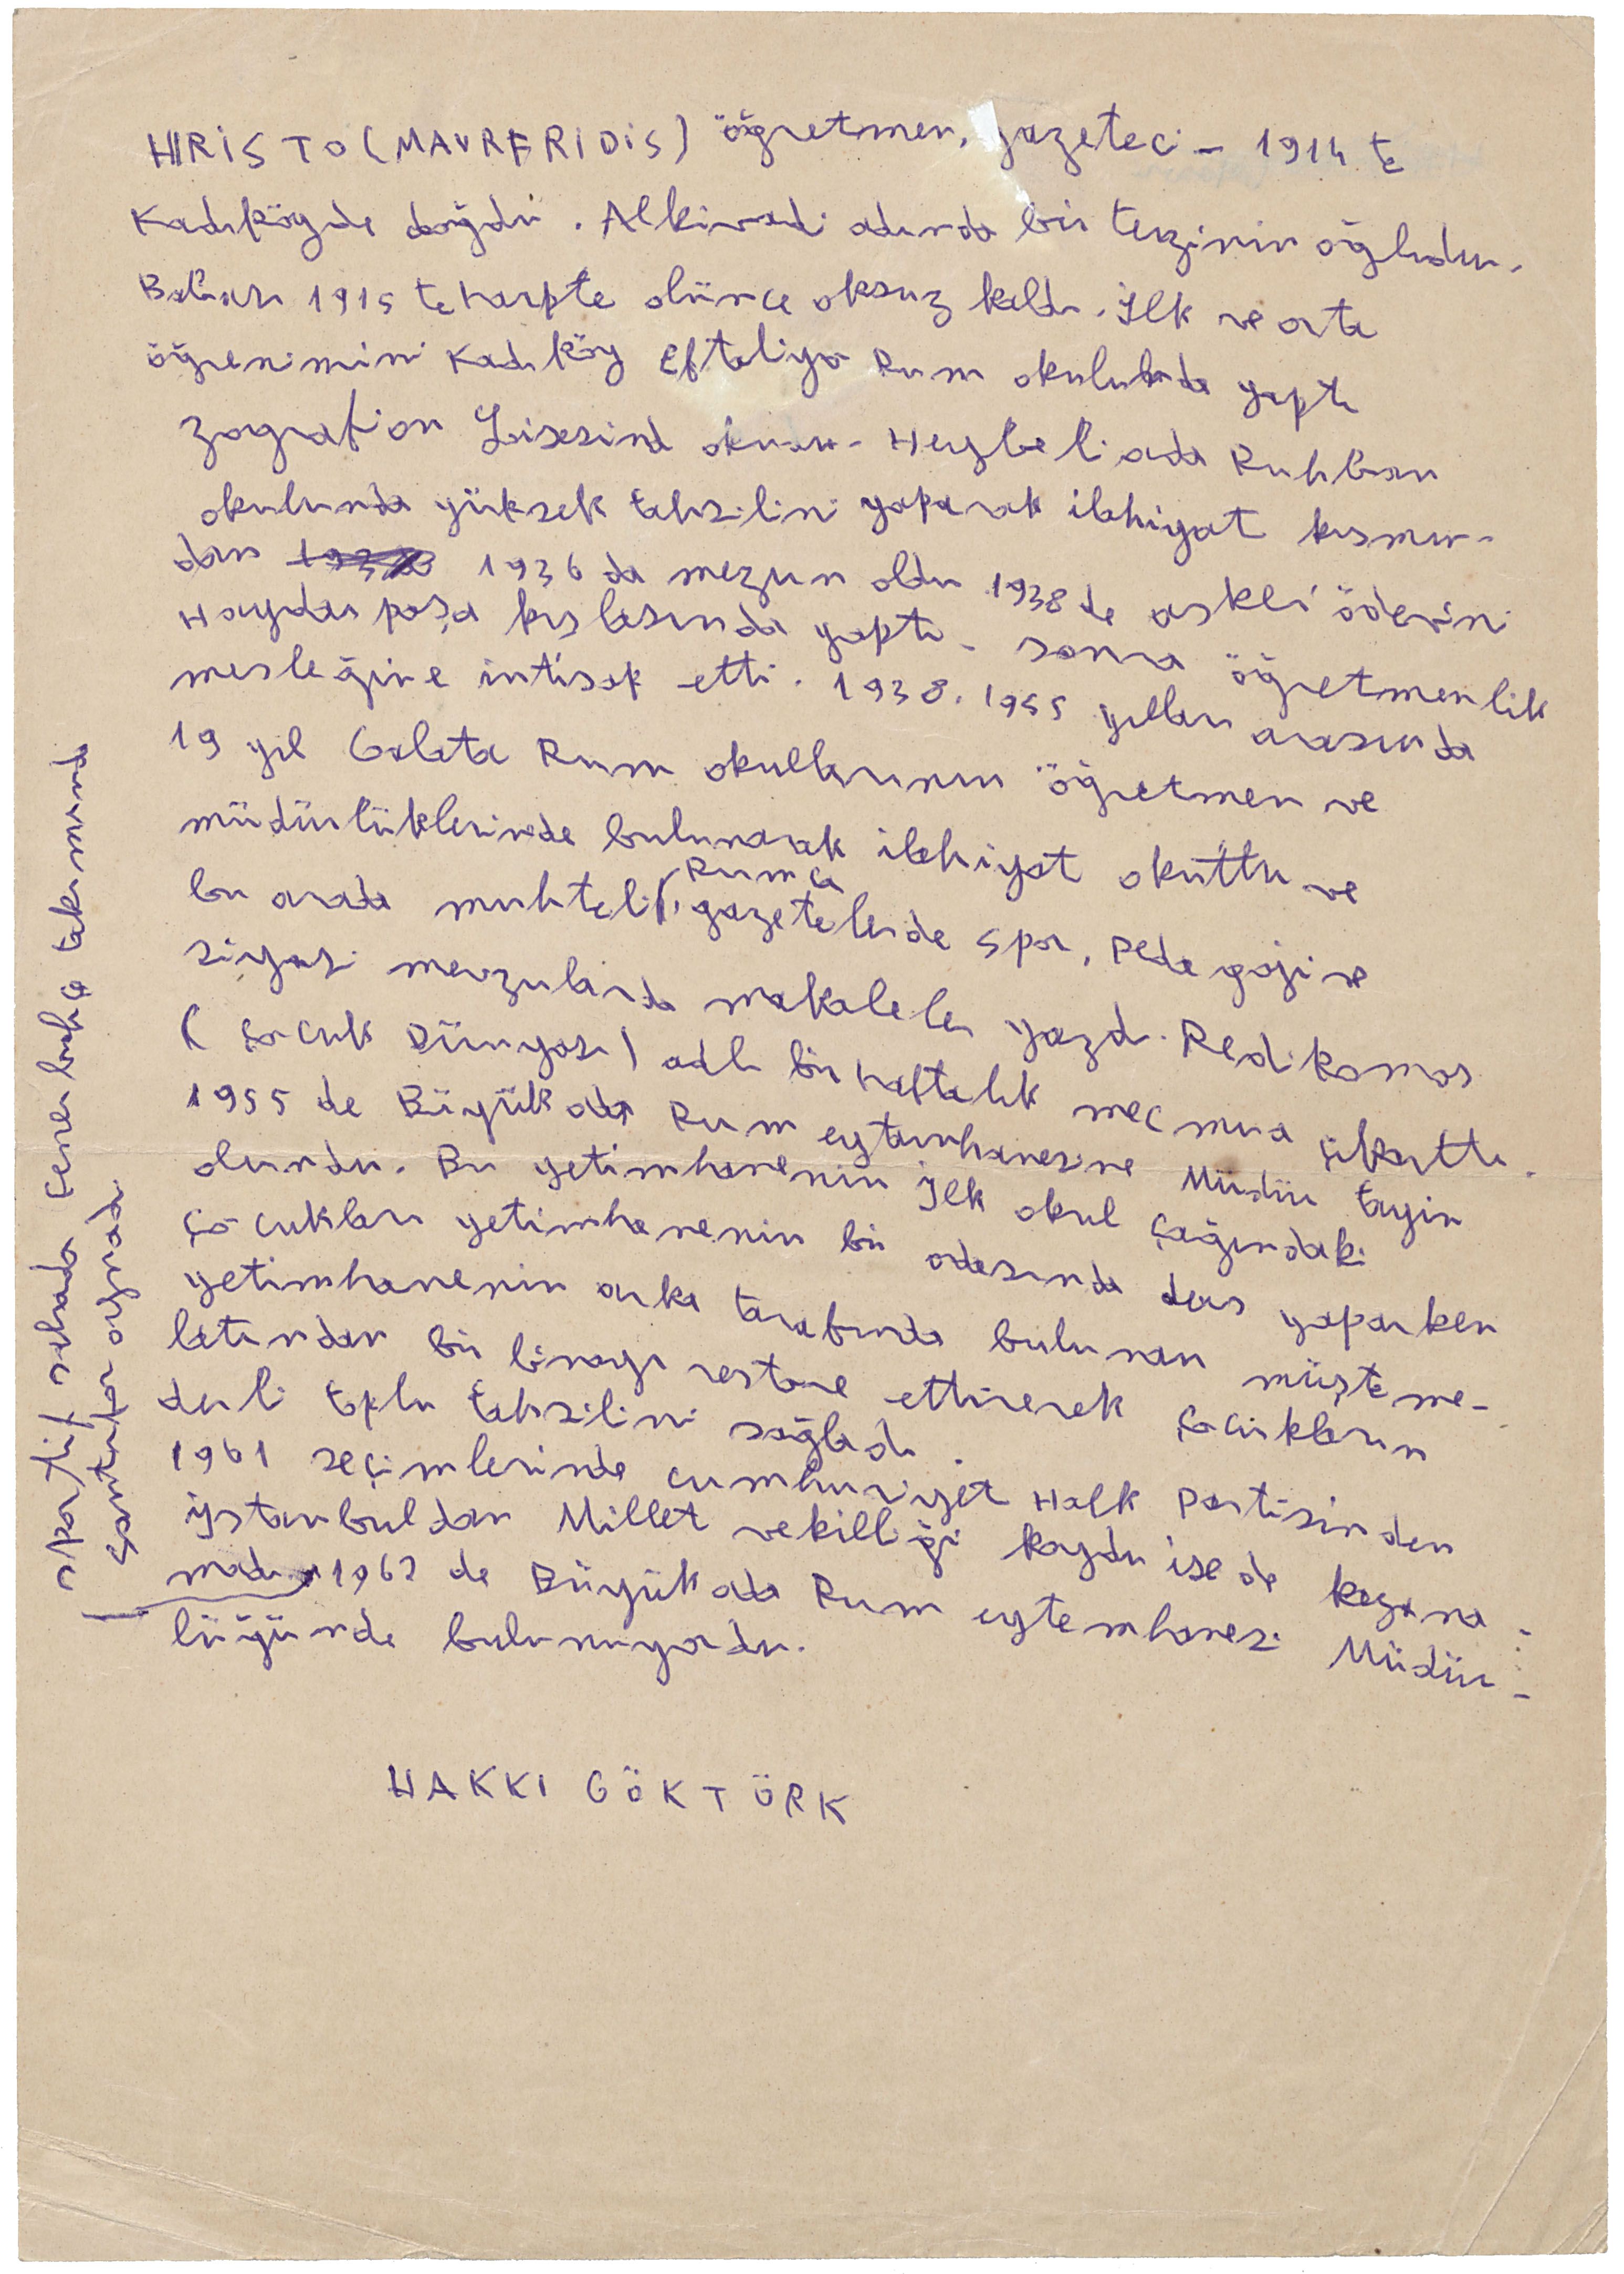 HRİSTO (MAVRFRİDİS) öğretmen, gazeteci - 1914 te
Kadıköyde doğdu. Alkivadi adında bir terzinin oğludur.
Babası 1915 te harpte olünce oksuz kaldı. İlk ve orta
öğrenimini Kadıköy Eftaliya Rum okulunda yaptı
Zografion Lisesind okudu - Heybeliada Ruhban
okulunda yüksek tahsilini yaparak ilahiyat kısmın-
dan 1936 da mezun oldu 1938 de askeri ödevini
Haydarpaşa kışlasında yaptı - sonra öğretmenlik
mesleğine intisap etti. 1938. 1955 yılları arasında
19 yıl Galata Rum okullarının öğretmen ve
müdürlüklerinde bulunarak ilahiyat okuttu ve
bu arada muhtelif, Rumca gazetelerde spor, Pedagoji ve
siyasi mevzularda makaleler yazdı. Pedikomos
(Çocuk Dünyası) adlı bir haftalık mecmua çıkarttı.
1955 de Büyük ada Rum eytamhanesine Müdür tayin
olundu. Bu yetimhanenin İlk okul çağındaki
çocukları yetimhanenin bir odasında ders yaparken
yetimhanenin arka tarafında bulunan müşteme-
latından bir binayı restore ettirerek çocukların
derli toplu tahsilini sağladı.
1961 seçimlerinde cumhuriyet Halk Partisinden
İstanbuldan Millet vekilliği koydu ise de kazana-
madı 1962 de Büyük ada Rum eytemhanesi Müdür-
lüğünde bulunuyordu.
HAKKI GÖKTÖRK
sportif sahada Fenerbahçe takımında
santrfor oynadı